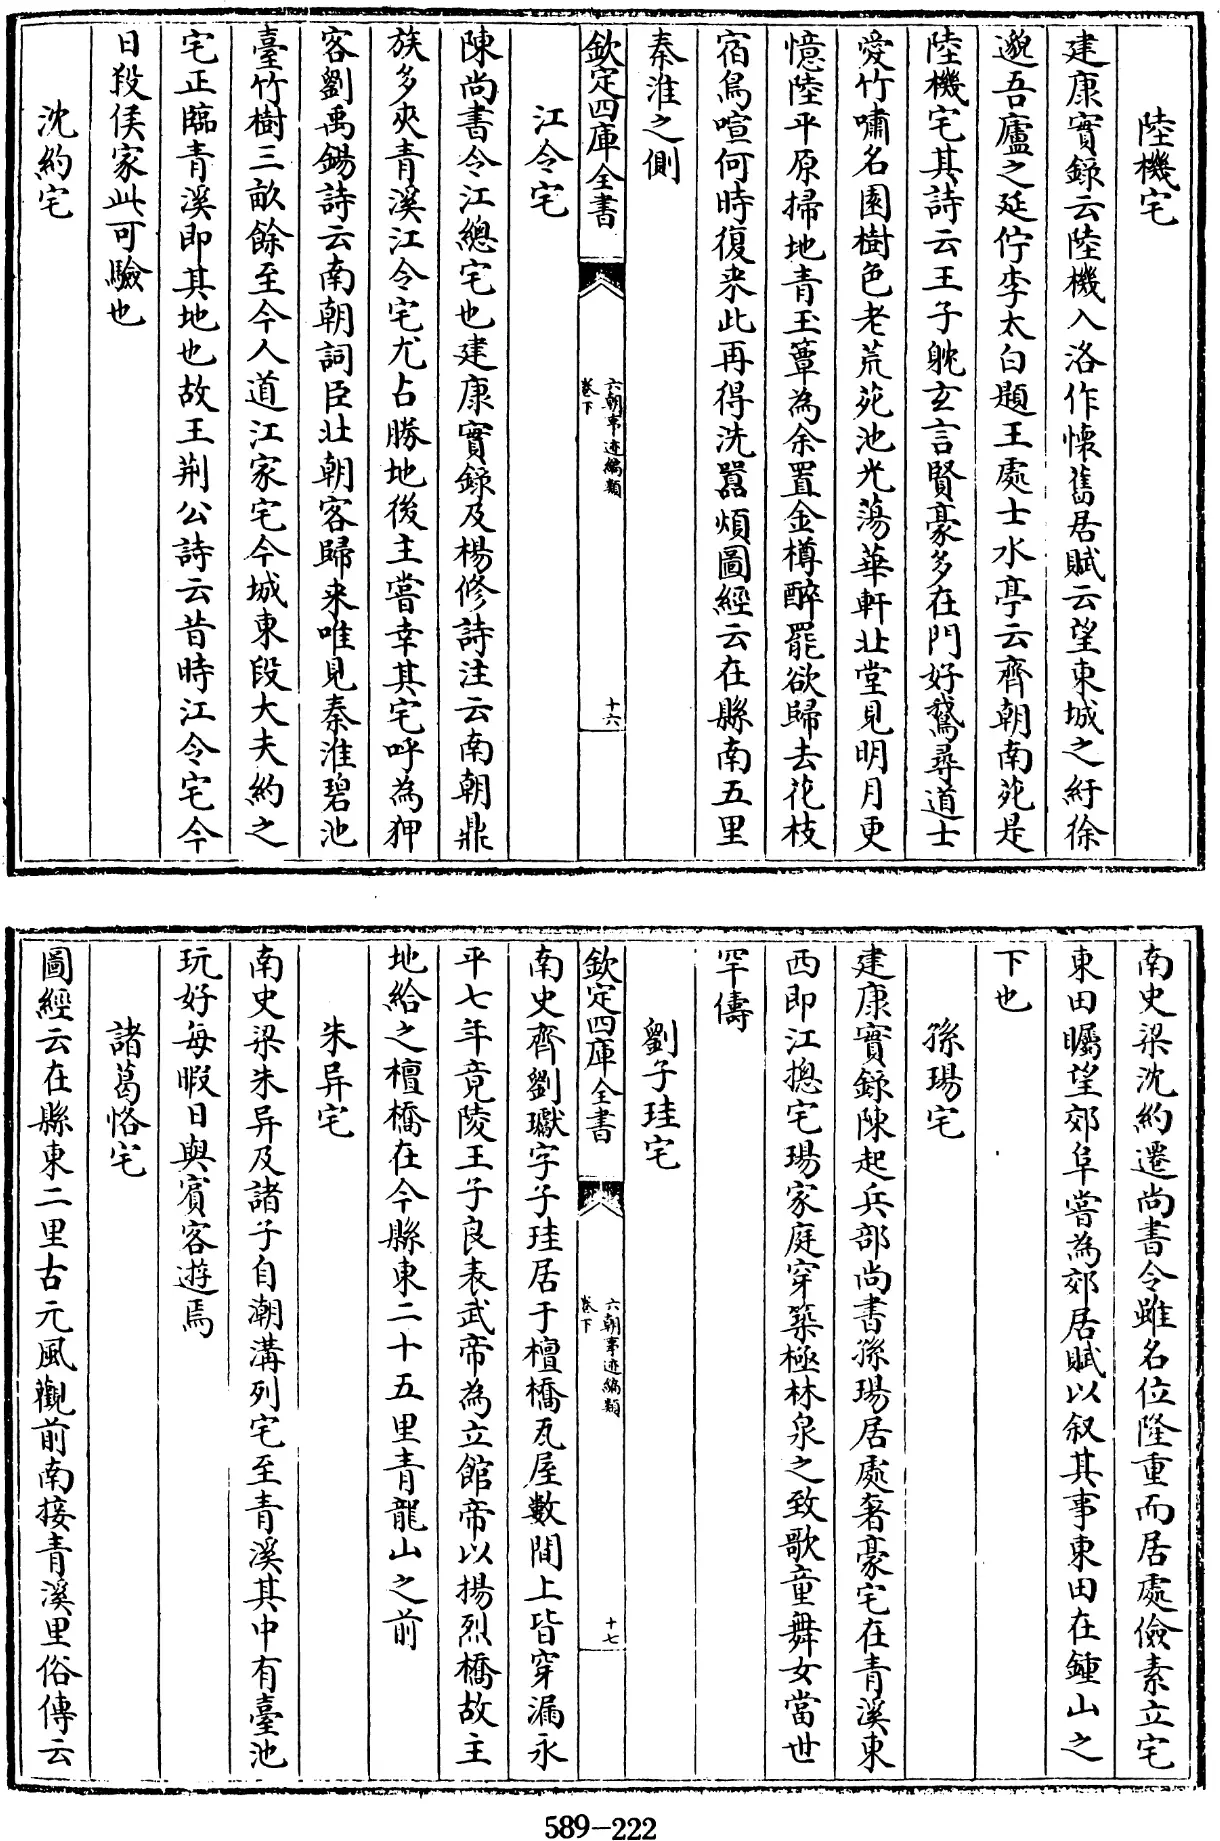 陸機宅
建康實録云陸機入洛作懷舊居賦云望東城之紆徐
邈吾廬之延佇李太白題王處士水亭云齊朝南苑是
陸機宅其詩云王子躭玄言賢豪多在門好鵞尋道士
愛竹嘯名園樹色老荒苑池光蕩華軒北堂見明月更
憶陸平原掃地青玉簟為余置金樽醉罷欲歸去花枝
宿鳥喧何時復来此再得洗囂煩圖經云在縣南五里
秦淮之側
欽定四庫全書
六朝事迹編類
卷下
十六
江令宅
陳尚書令江總宅也建康實録及楊修詩注云南朝鼎
族多夾青溪江令宅尤占勝地後主嘗幸其宅呼為狎
客劉禹錫詩云南朝詞臣北朝客歸来唯見秦淮碧池
臺竹樹三畝餘至今人道江家宅今城東段大夫約之
宅正臨青溪即其地也故王荆公詩云昔時江令宅今
日段侯家此可驗也
沈約宅
南史梁沈約遷尚書令雖名位隆重而居處儉素立宅
東田矚望郊阜嘗為郊居賦以叙其事東田在鍾山之
下也
孫瑒宅
建康實録陳起兵部尚書孫瑒居處奢豪宅在青溪東
西即江摠宅瑒家庭穿築極林泉之致歌童舞女當世
罕儔
劉子珪宅
欽定四庫全書
六朝事迹編類
卷下
十七
南史齊劉瓛字子珪居于檀橋瓦屋數間上皆穿漏永
平七年竟陵王子良表武帝為立館帝以揚烈橋故主
地給之檀橋在今縣東二十五里青龍山之前
朱异宅
南史梁朱异及諸子自潮溝列宅至青溪其中有臺池
玩好每暇日與賓客遊焉
諸葛恪宅
圖經云在縣東二里古元風觀前南接青溪里俗傳云
589-222